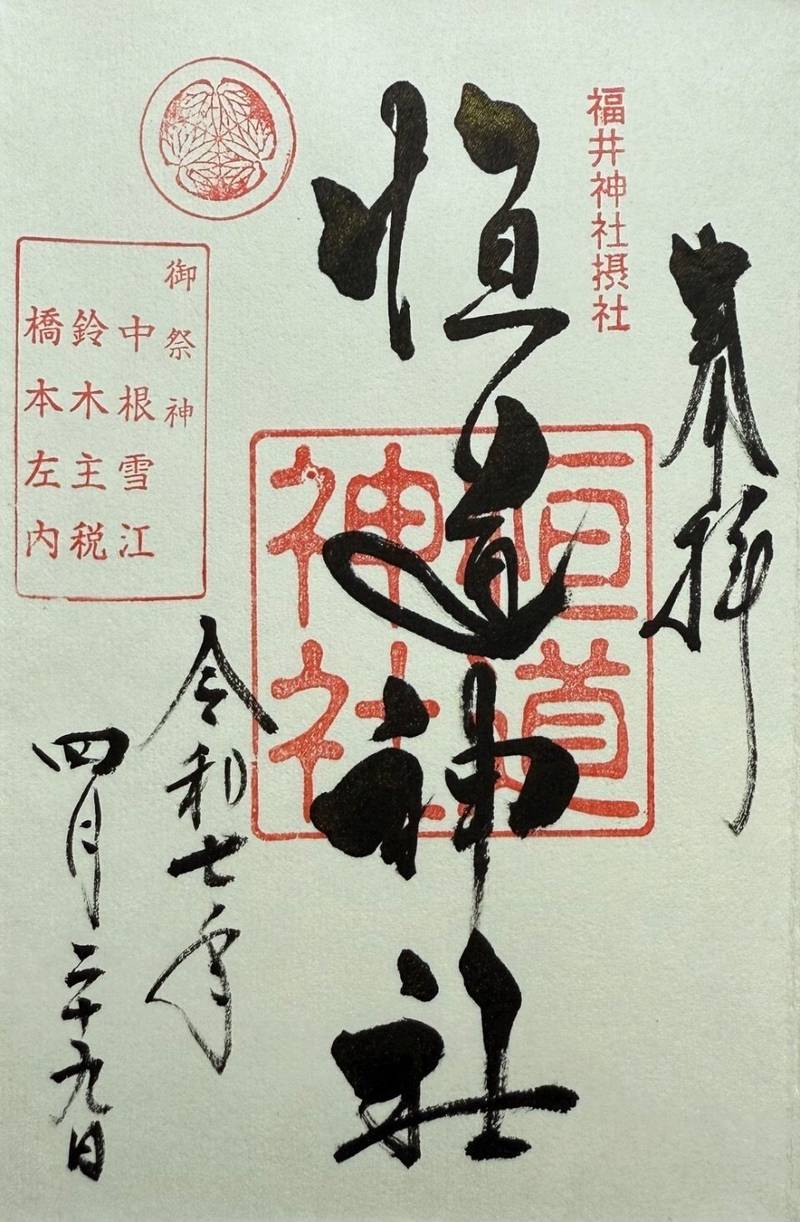 奉拝
福井神社摂社
恒道神社
恒道
神社
御祭神
中根雪江
鈴木主税
橋本左内
令和七年
四月二十九日